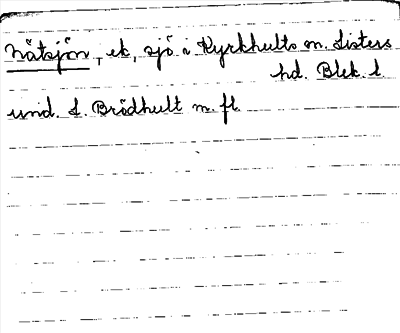 Nätsjön, ek, sjö i Kyrkhults sn. Listers
hd. Blek. l
und. L. Brödhult m. fl.